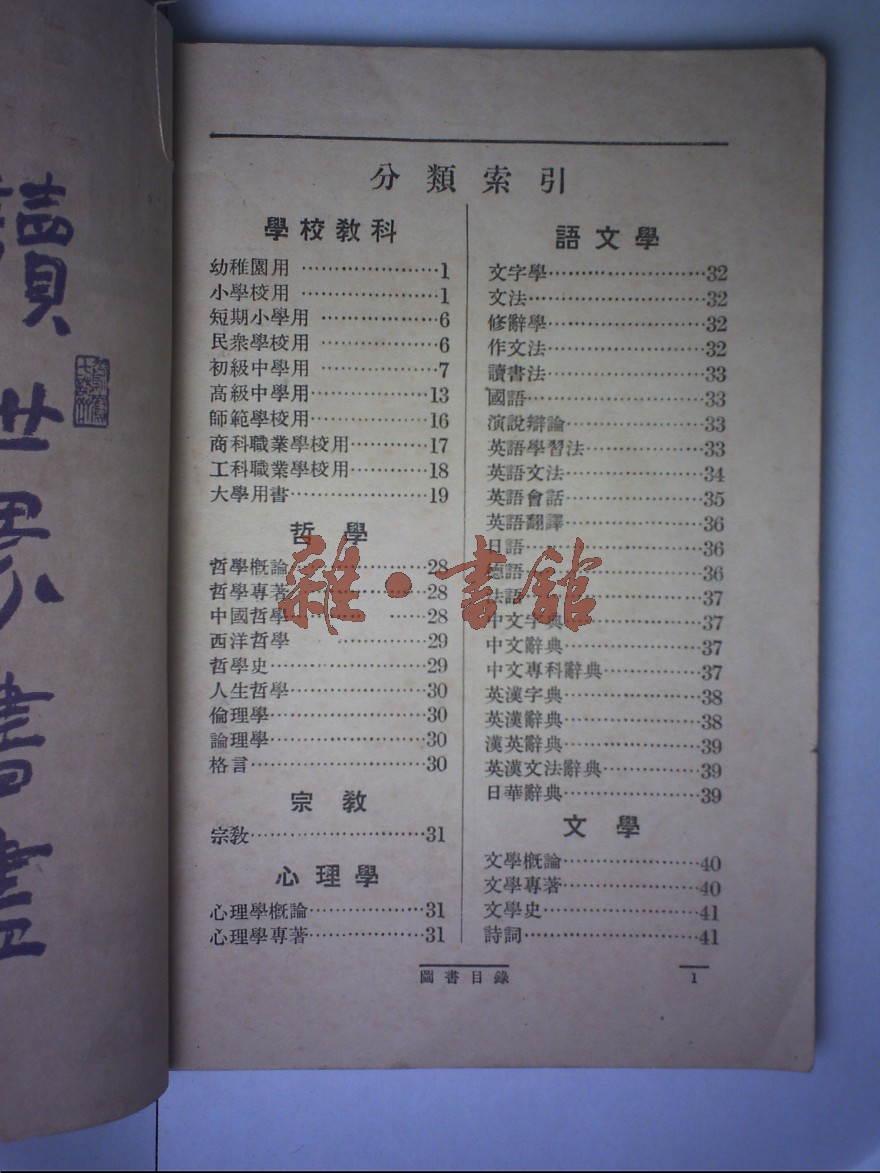 讀世界書畫
分類索引
學校教科
幼稚園用…………………1
小學校用…………………1
短期小學用………………6
民眾學校用………………6
初級中學用………………7
高級中學用………………13
師範學校用………………16
商科職業學校用…………17
工科職業學校用…………18
大學用書…………………19
哲學
哲學概論…………………28
哲學專著…………………28
中國哲學…………………28
西洋哲學…………………29
哲學史……………………29
人生哲學…………………30
倫理學……………………30
論理學……………………30
格言………………………30
宗教
宗教………………………31
心理學
心理學概論………………31
心理學專著………………31
語文學
文字學……………………32
文法………………………32
修辭學……………………32
作文法……………………32
讀書法……………………33
國語………………………33
演說辯論…………………33
英語學習法………………33
英語文法…………………34
英語會話…………………35
英語翻譯…………………36
日語………………………36
德語………………………36
法語………………………37
中文字典…………………37
中文辭典…………………37
中文專科辭典……………37
英漢字典…………………38
英漢辭典…………………38
漢英辭典…………………39
英漢文法辭典……………39
日華辭典…………………39
文學
文學概論…………………40
文學專著…………………40
文學史……………………41
詩詞………………………41
圖書目錄
1
雜·書館